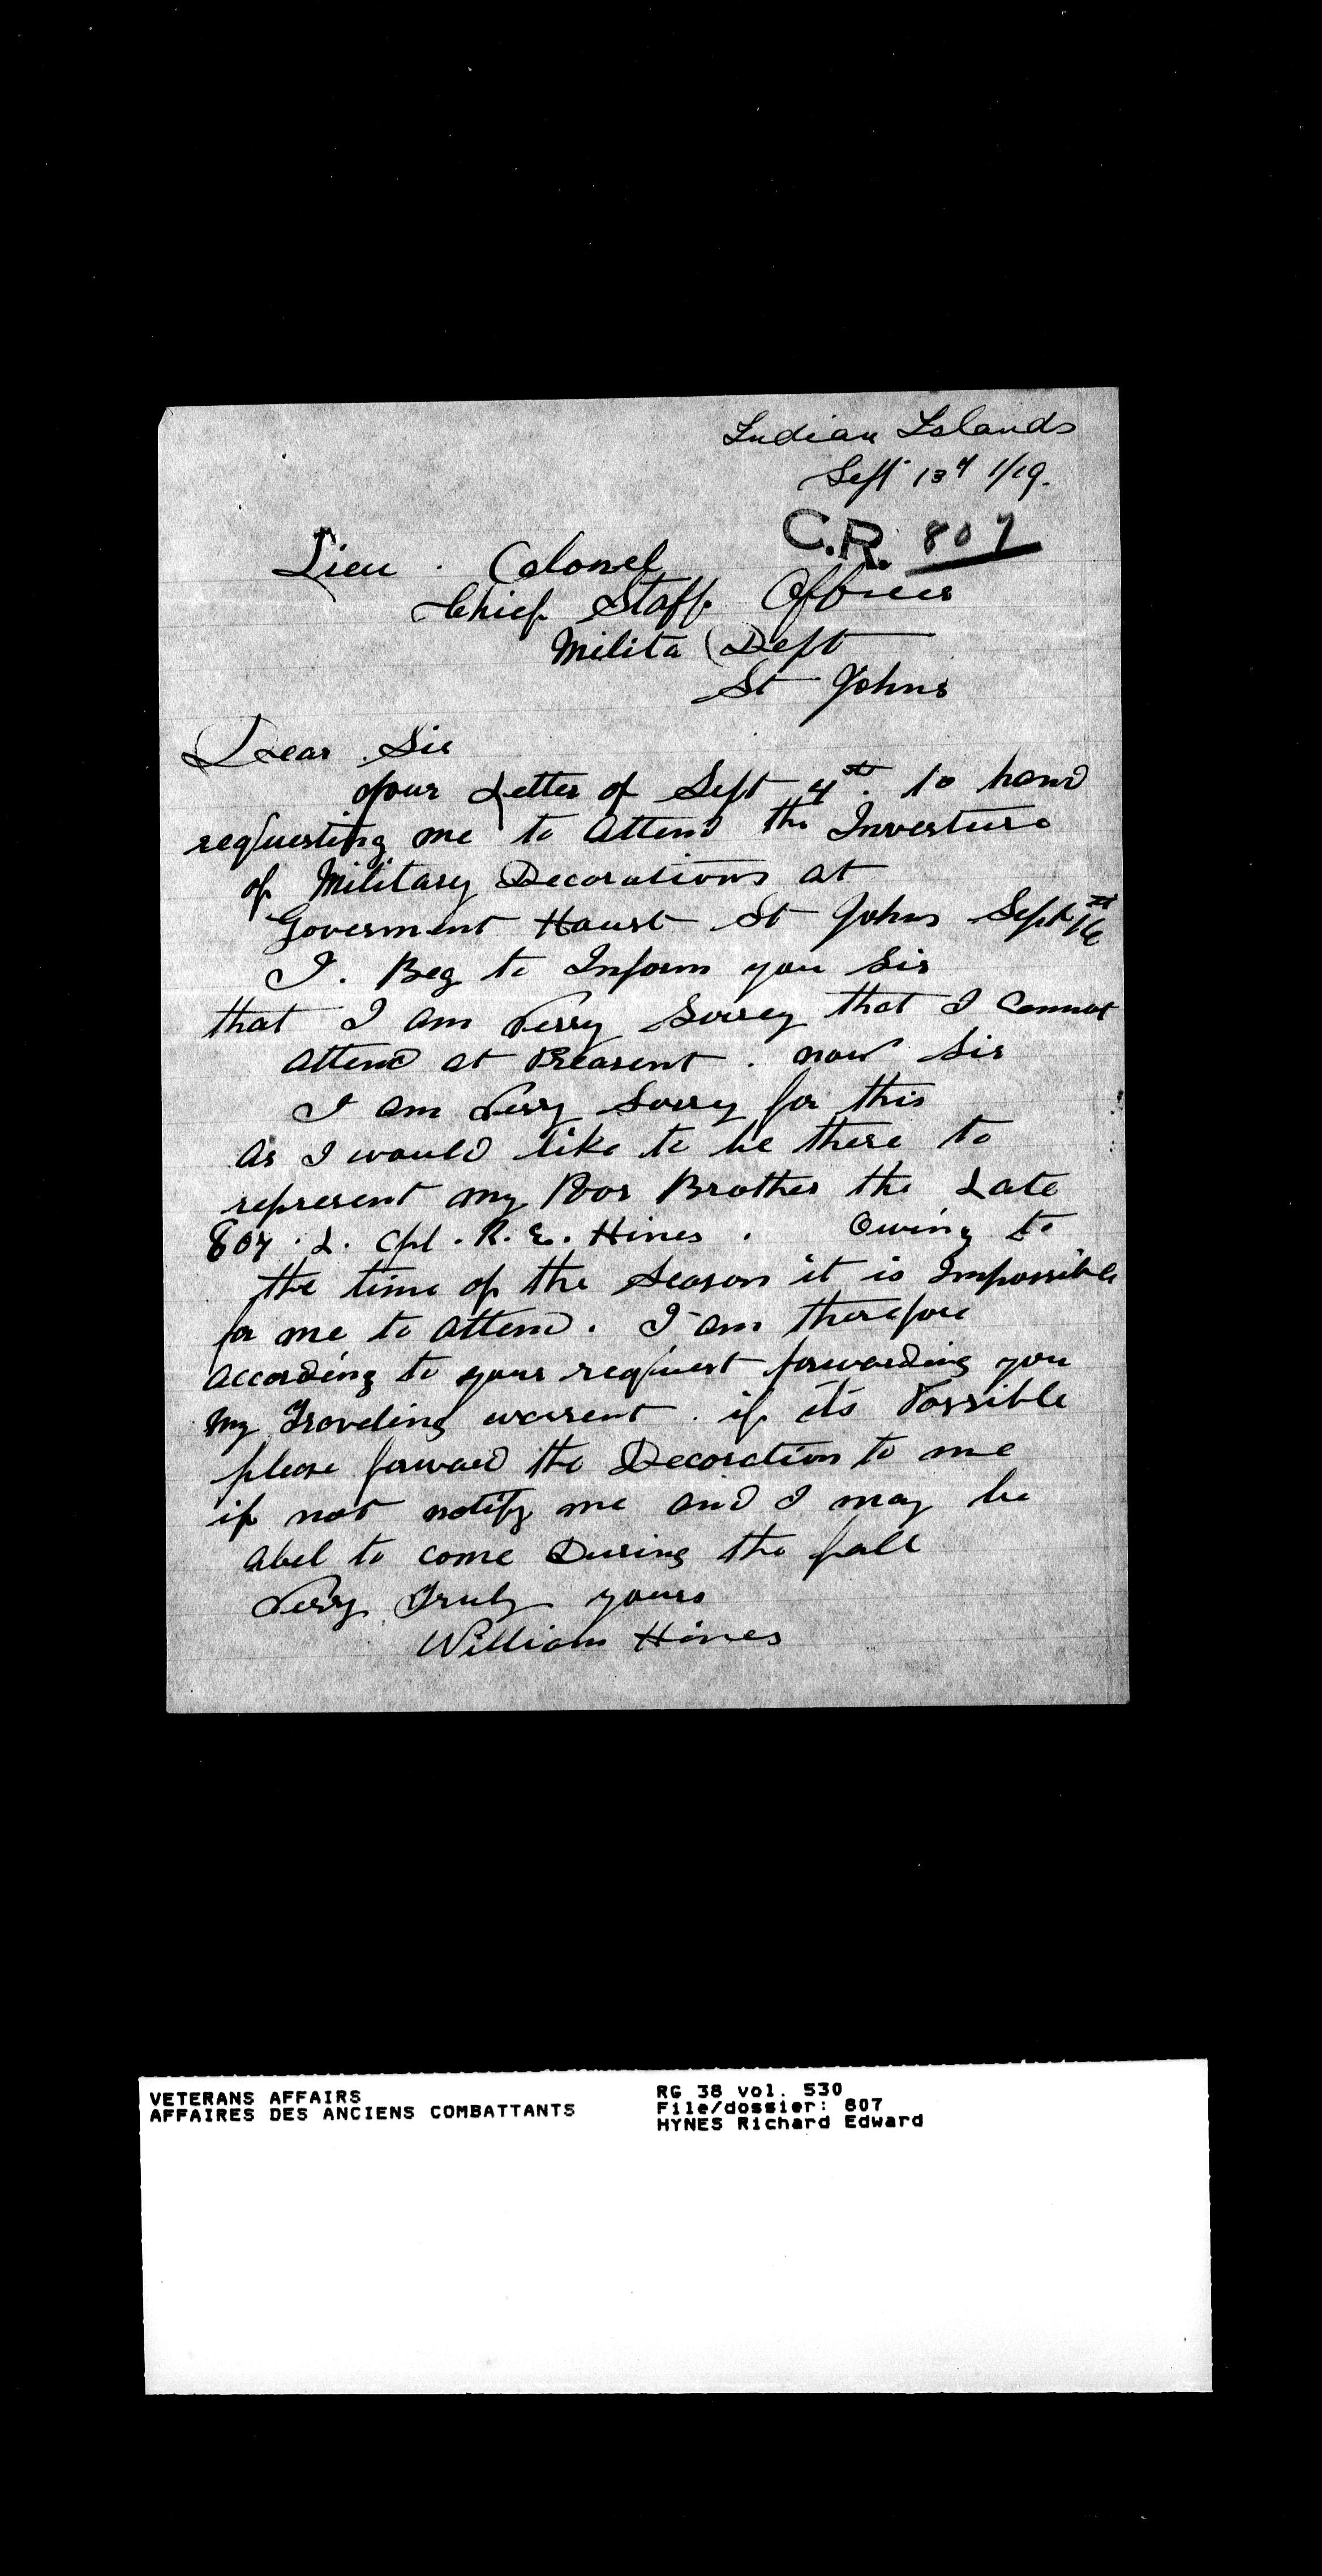 Indian Islands
Sept 13th 1/19.
C.R. 807
Lieu. Colonel
Chief Staff Officer
Milita Dept
St Johns
Dear Sir
your Letter of Sept 4th. to hand
requesting me to Attend the Investure
of Military Decorations at
Goverment House St Johns Sept 16th
I. Beg to Inform you Sir
that I am Very Sorrey that I Cannot
attend at Preasent. now Sir
I am Very Sorry for this
as I would like to be there to
represent my Poor Brother the Late
807. L. Cpl. R. E. Hines. Owing to
the time of the Season it is Impossible
for me to attend. I am therefore
according to your request forwarding you
My Traveling warrent. if its Possible
please forward the Decoration to me
if not notify me and I may be
abel to come During the fall
Very Truly yours
William Hines
VETERANS AFFAIRS
AFFAIRES DES ANCIENS COMBATTANTS
RG 38 vol. 530
File/dossier: 807
HYNES Richard Edward